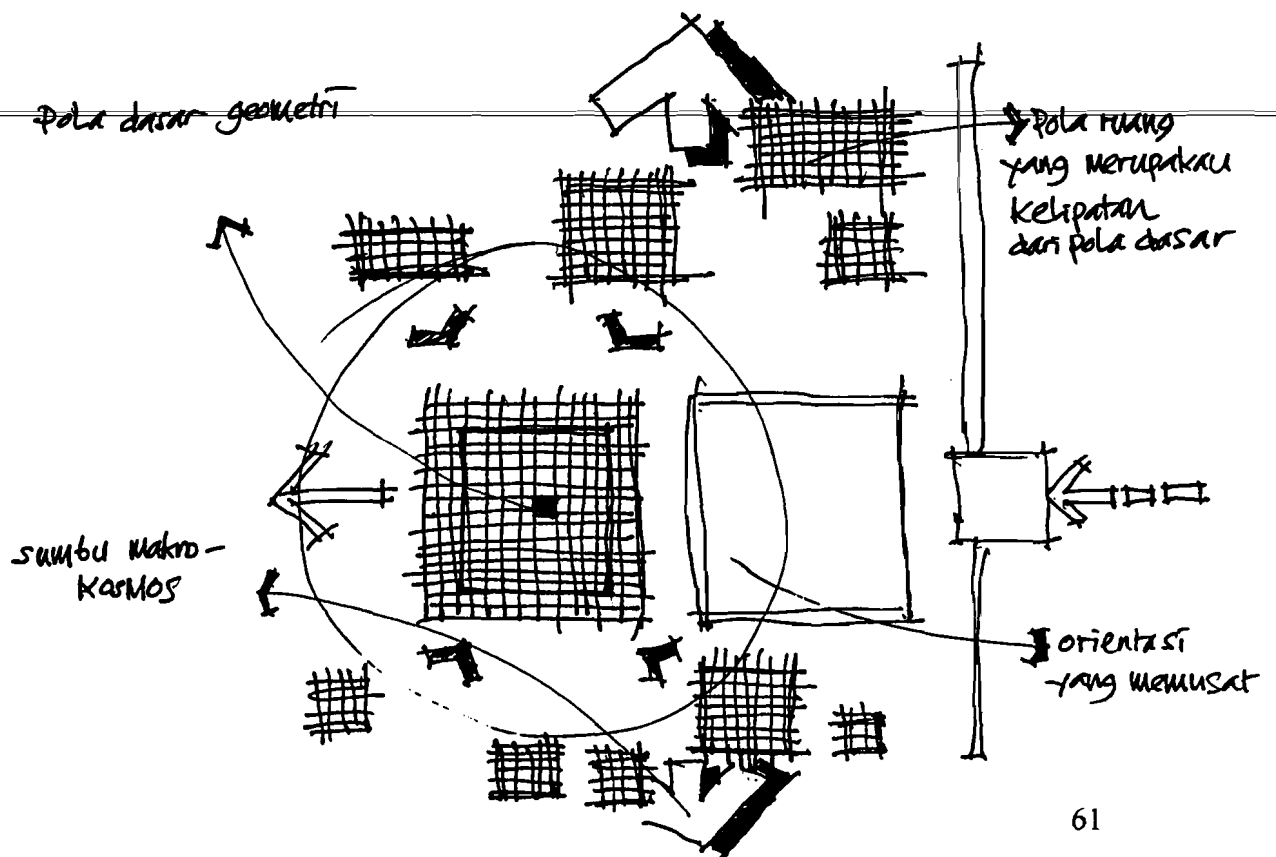 Pola dasar geometri
Pola ruang
yang merupakan
kelipatan
dari pola dasar
sumbu makro-
kosmos
orientasi
yang memusat
61